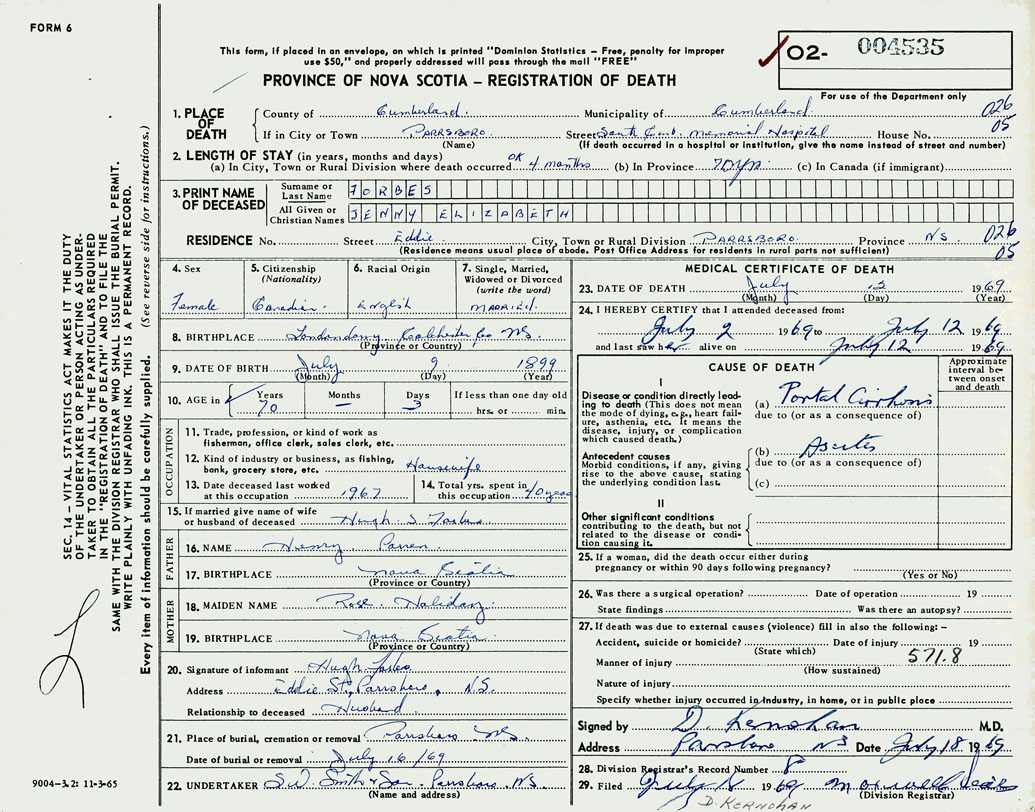 FORM 6
This form, if placed in an envelope, on which is printed "Dominion Statistics – Free, penalty for improper
use $50," and properly addressed will pass through the mail "FREE"
PROVINCE OF NOVA SCOTIA – REGISTRATION OF DEATH
02- 004535
For use of the Department only
1. PLACE OF DEATH { County of Cumberland. Municipality of Cumberland 026
If in City or Town PARRSBORO. Street South Cumb. Memorial Hospital House No. 05
(Name) (If death occurred in a hospital or institution, give the name instead of street and number)
2. LENGTH OF STAY (in years, months and days)
(a) In City, Town or Rural Division where death occurred OK 4 months (b) In Province 70yrs. (c) In Canada (if immigrant)
3. PRINT NAME OF DECEASED { Surname or Last Name FORBES
All Given or Christian Names JENNY ELIZABETH
RESIDENCE No. Street Eddie City, Town or Rural Division PARRSBORO. Province N.S. 026
(Residence means usual place of abode. Post Office Address for residents in rural parts not sufficient) 05
4. Sex Female
5. Citizenship (Nationality) Canadian
6. Racial Origin English
7. Single, Married, Widowed or Divorced (write the word) MARRIED.
8. BIRTHPLACE Londonderry Colchester Co NS.
(Province or Country)
9. DATE OF BIRTH July 9 1899
(Month) (Day) (Year)
10. AGE in Years 70 Months — Days 3 If less than one day old
hrs. or min.
OCCUPATION
11. Trade, profession, or kind of work as
fisherman, office clerk, sales clerk, etc.
12. Kind of industry or business, as fishing,
bank, grocery store, etc. Housewife
13. Date deceased last worked
at this occupation 1967
14. Total yrs. spent in
this occupation 40 years
15. If married give name of wife
or husband of deceased Hugh S Forbes
FATHER
16. NAME Henry
17. BIRTHPLACE Nova Scotia
(Province or Country)
MOTHER
18. MAIDEN NAME Rose Haliday
19. BIRTHPLACE Nova Scotia
(Province or Country)
20. Signature of informant Hugh Forbes
Address Eddie St, Parrsboro, N.S.
Relationship to deceased Husband
21. Place of burial, cremation or removal Parrsboro NS
Date of burial or removal July 16/69
22. UNDERTAKER S.W. Smith & Son Parrsboro NS
(Name and address)
MEDICAL CERTIFICATE OF DEATH
23. DATE OF DEATH July 1969
(Month) (Day) (Year)
24. I HEREBY CERTIFY that I attended deceased from:
July 2 1969 to July 12 1969
and last saw her alive on July 12 1969
CAUSE OF DEATH
Approximate interval between onset and death
I
Disease or condition directly leading to death (This does not mean the mode of dying, e.g., heart failure, asthenia, etc. It means the disease, injury, or complication which caused death.)
(a) Portal Cirrhosis
due to (or as a consequence of)
Antecedent causes
Morbid conditions, if any, giving rise to the above cause, stating the underlying condition last.
(b) Ascites
due to (or as a consequence of)
(c)
II
Other significant conditions
contributing to the death, but not related to the disease or condition causing it.
25. If a woman, did the death occur either during
pregnancy or within 90 days following pregnancy?
(Yes or No)
26. Was there a surgical operation? Date of operation 19
State findings Was there an autopsy?
27. If death was due to external causes (violence) fill in also the following: –
Accident, suicide or homicide? Date of injury 19
(State which)
Manner of injury 571.8
(How sustained)
Nature of injury
Specify whether injury occurred in industry, in home, or in public place
Signed by D. Kernohan M.D.
Address Parrsboro NS Date July 18 1969
28. Division Registrar's Record Number 8
29. Filed July 18 1969
(Division Registrar)
D. KERNOHAN
SEC. 14 – VITAL STATISTICS ACT MAKES IT THE DUTY
OF THE UNDERTAKER OR PERSON ACTING AS UNDER-
TAKER TO OBTAIN ALL THE PARTICULARS REQUIRED
IN THE "REGISTRATION OF DEATH" AND TO FILE THE
SAME WITH THE DIVISION REGISTRAR WHO SHALL ISSUE THE BURIAL PERMIT.
WRITE PLAINLY WITH UNFADING INK. THIS IS A PERMANENT RECORD.
Every item of information should be carefully supplied. (See reverse side for instructions.)
9004-3.2: 11-3-65